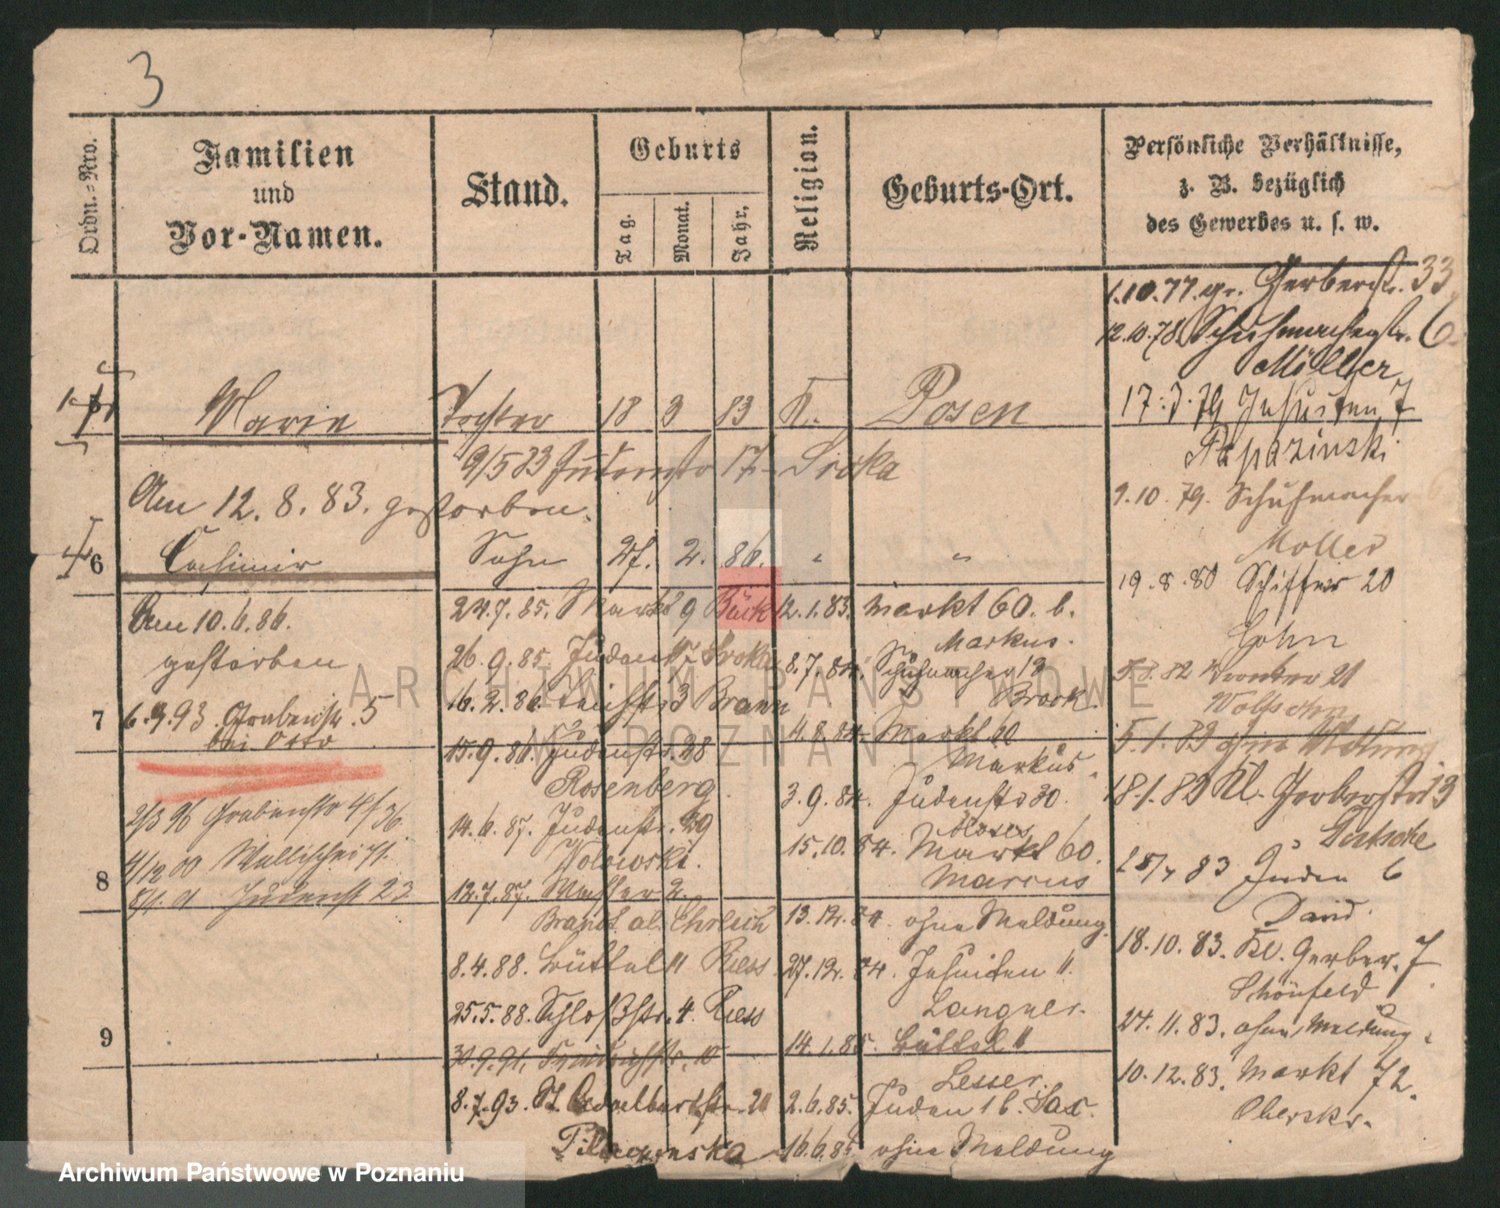 3
Ordn.-Nro.
Familien
und
Vor-Namen.
Stand.
Geburts
Tag.
Monat.
Jahr.
Religion.
Geburts-Ort.
Persönliche Verhältnisse,
z. B. bezüglich
des Gewerbes u. s. w.
1.10.77. gr. Gerberstr. 33
12.10.78 Schuhmacherstr. 6
Möller
Marie Tochter 18 3 83 K. Posen
17.3.79 Jesuiten 7
9/5 83 Judenstr 17 Sroka
Am 12.8.83. gestorben.
9.10.79. Schuhmacher 6
Moller
6 Casimir Sohn 27. 2. 86. " "
19.8.80 Schiffer 20
Cohn
Am 10.6.86.
gestorben
7 6.9.93. Grabenstr. 5
bei Otto
2/3 96 Grabenstr 4/36
4/12 00 Wallischei 71.
Judenstr 23
8
9
24.7.85. Markt 9 Bück
26.9.85. Judenstr 17 Sroka
16.2.86. 3 Brann
15.9.86. Judenstr. 28
Rosenberg.
14.6.87. Judenstr. 29
Wolowski.
12.7.87. Wasser 2.
Brandt al. Ehrlich
8.4.88. Büttel 11 Ress
25.5.88. Schloßstr. 4 Ress
30.9.91. Friedrichstr. 10
8.7.93. St. Adalbertstr. 20
12.1.83. Markt 60. b.
Markus.
8.7.84. Schuhmacher 13
Brock.
4.8.84. Markt 60
Markus.
3.9.84. Judenstr 30
Moses
15.10.84. Markt 60.
Marcus
13.12.84. ohne Meldung.
27.12.84. Jesuiten 11.
Langner.
14.1.85. Büttel 11
Lesser.
2.6.85. Juden 16. Sax.
16.6.85 ohne Meldung
5.3.82 Wronker 21
Wolfsohn
5.1.83 ohne Meldung
18.1.82 Kl. Gerberstr 13
25/7 83 Juden 6
David.
18.10.83. Kl. Gerber. 7
Schönfeld
27.11.83. ohne Meldung.
10.12.83. Markt 72.
Oberskr.
ARCHIWUM PAŃSTWOWE
W POZNANIU
Archiwum Państwowe w Poznaniu